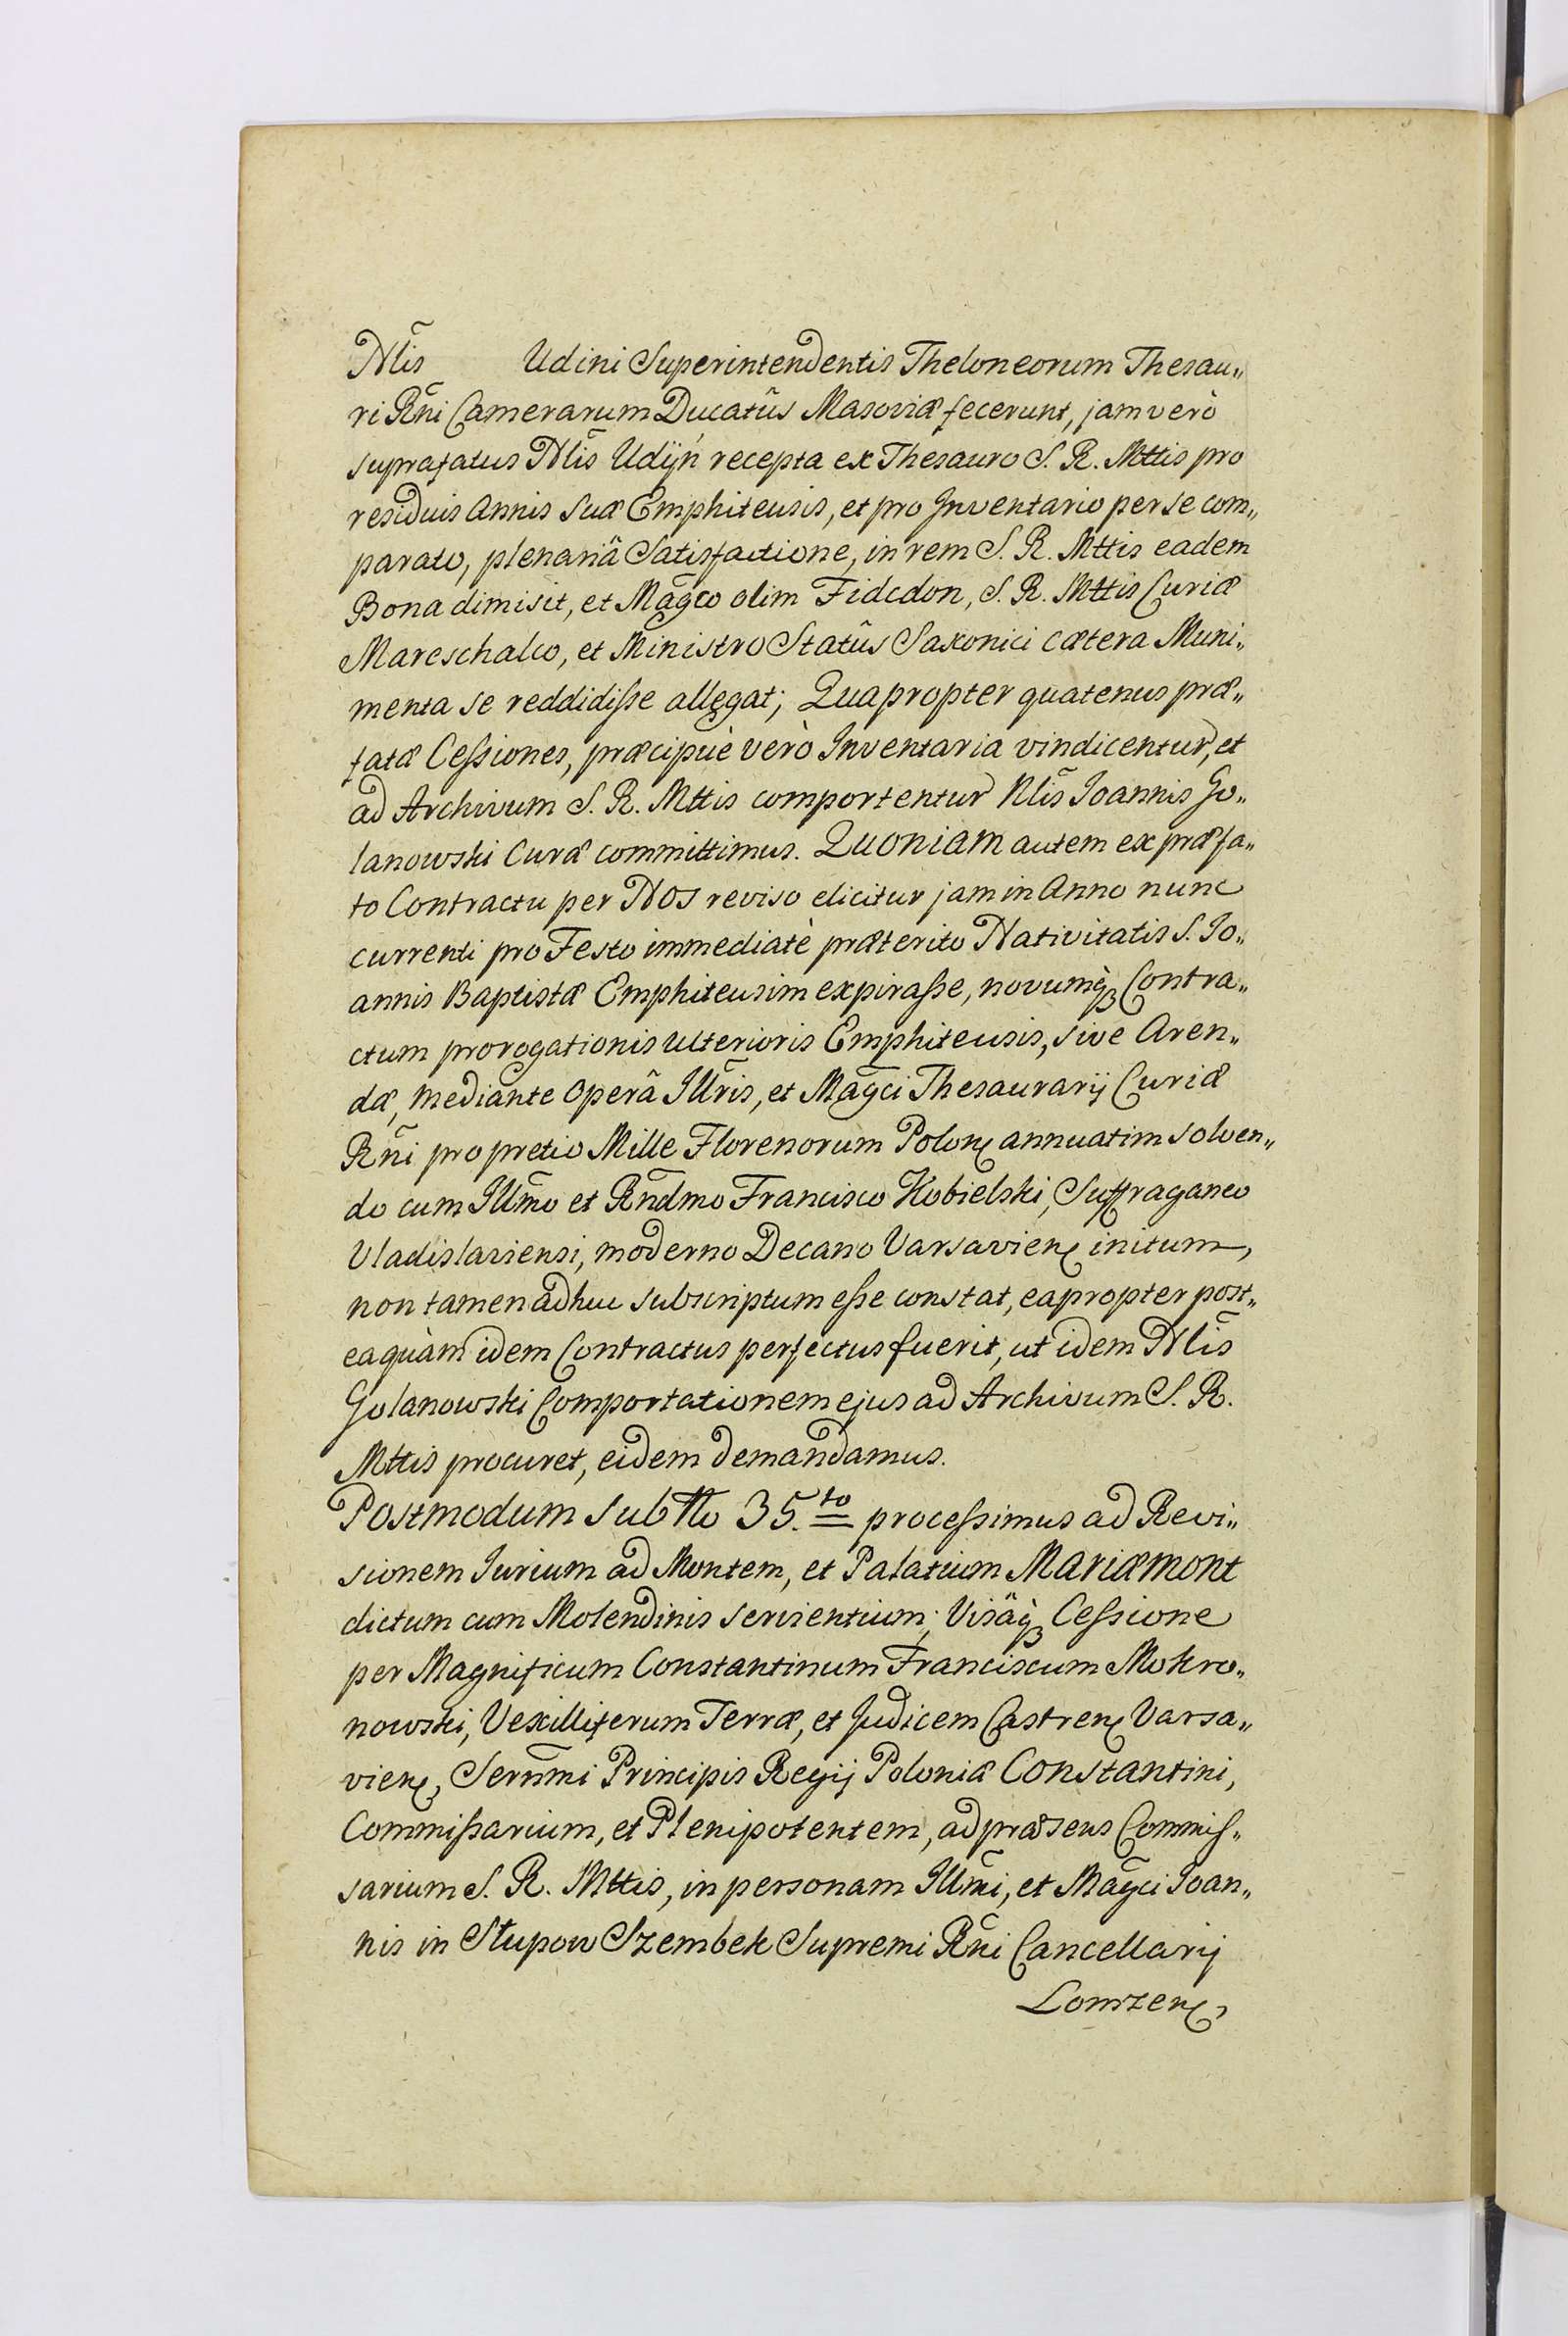 Nl̃is Udini Superintendentis Theloneorum Thesau„
ri Rñi Camerarum Ducatûs Masoviæ fecerunt, jam verò
suprafatus Nl̃is Udijn recepta ex Thesauro S. R. Mttis pro
residuis Annis suæ Emphiteusis, et pro Inventario per se com„
parato, plenariâ Satisfactione, in rem S. R. Mttis eadem
Bona dimisit, et Mag̃co olim Fidcdon, S. R. Mttis Curiæ
Mareschalco, et Ministro Statûs Saxonici cætera Muni„
menta se reddidiſse allegat; Quapropter quatenus præ„
fatæ Ceſsiones, præcipuè verò Inventaria vindicentur, et
ad Archivum S. R. Mttis comportentur Nl̃is Joannis Go„
lanowski Curæ committimus. Quoniam autem ex præfa„
to Contractu per Nos reviso elicitur jam in Anno nunc
currenti pro Festo immediatè præterito Nativitatis S. Jo„
annis Baptistæ Emphiteusim expiraſse, novumq̀ꝫ Contra„
ctum prorogationis ulterioris Emphiteusis, sive Aren„
dæ, mediante Operâ Jllr̃is, et Mag̃ci Thesaurarij Curiæ
Rñi pro pretio Mille Florenorum Polonꝭ annuatim solven„
do cum Jllm̃o et Rnd̃mo Francisco Kobielski, Suffraganeo
Vladislaviensi, moderno Decano Varsavienꝭ initum,
non tamen adhuc subscriptum eſse constat, eapropter post„
eaquàm idem Contractus perfectus fuerit, ut idem Nl̃is
Golanowski Comportationem ejus ad Archivum S. R.
Mttis procuret, eidem demandamus.
Postmodum sub No 35.to proceſsimus ad Revi„
sionem Jurium ad Montem, et Palatium Mariæmont
dictum cum Molendinis servientium; Visâq̀ꝫ Ceſsione
per Magnificum Constantinum Franciscum Mokro„
nowski, Vexilliferum Terræ, et Judicem Castrenꝭ Varsa„
vienꝭ, Serñmi Principis Regij Poloniæ Constantini,
Commiſsarium, et Plenipotentem, ad præsens Commiſ„
sarium S. R. Mttis, in personam Jllm̃i, et Mag̃ci Joan„
nis in Słupow Szembek Supremi Rñi Cancellarij
Lomzenꝭ,